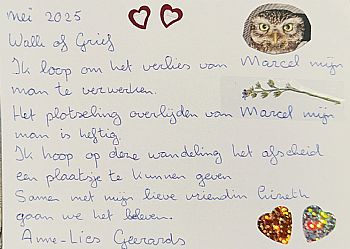 mei 2025
Walk of Grief
Ik loop om het verlies van Marcel mijn
man te verwerken.
Het plotseling overlijden van Marcel mijn
man is heftig.
Ik hoop op deze wandeling het afscheid
een plaatsje te kunnen geven
Samen met mijn lieve vriendin
gaan we het beleven.
Anne-Lies Geerards